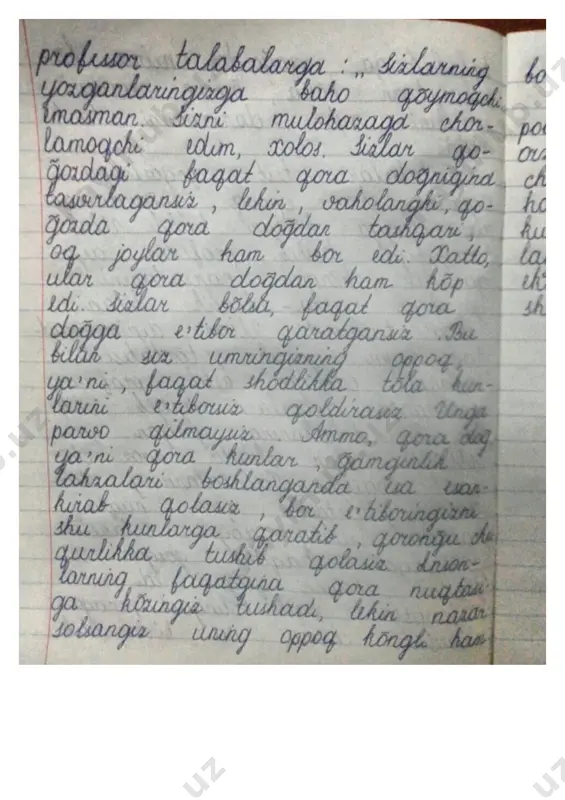 professor talabalarga : „ Sizlarning
yozganlaringizga baho qōymoqchi
emasman. Sizni mulohazaga chor-
lamoqchi edim, xolos. Sizlar qo-
ğozdagi faqat qora doğnigina
tasvirlagansiz, lekin, vaholangki, qo-
ğozda qora doğdan tashqari,
oq joylar ham bor edi. Xatto,
ular qora doğdan ham kōp
edi. Sizlar bōlsa, faqat qora
doğga e'tibor qaratgansiz. Bu
bilan siz umringizning oppoq,
ya'ni, faqat shodlikka tōla kun-
larini e'tiborsiz qoldirasiz. Unga
parvo qilmaysiz. Ammo, qora doğ
ya'ni qora kunlar, ğamginlik
lahzalari boshlanganda esa esan-
kirab qolasiz, bor e'tiboringizni
shu kunlarga qaratib, qorongu chu
qurlikka tushib qolasiz. Inson-
larning faqatgina qora nuqtasi-
ga kōzingiz tushadi, lekin nazar
solsangiz uning oppoq kōngli ham
bo
por
orz
ch
ho
ku
la
eh
sh